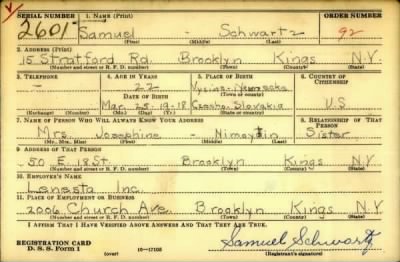 SERIAL NUMBER 1. NAME (Print) ORDER NUMBER
2601 Samuel - Schwartz 92
(First) (Middle) (Last)
2. ADDRESS (Print)
15 Stratford Rd. Brooklyn Kings N.Y.
(Number and street or R. F. D. number) (Town) (County) (State)
3. TELEPHONE 4. AGE IN YEARS 5. PLACE OF BIRTH 6. COUNTRY OF CITIZENSHIP
- 22
DATE OF BIRTH (Town or county)
Mar. 25 -19-18 Czecho Slovakia U.S
(Exchange) (Number) (Mo.) (Day) (Yr.) (State or country)
7. NAME OF PERSON WHO WILL ALWAYS KNOW YOUR ADDRESS 8. RELATIONSHIP OF THAT PERSON
Mrs. Josephine - Sister
(Mr., Mrs., Miss) (First) (Middle) (Last)
9. ADDRESS OF THAT PERSON
50 E. 18 St. Brooklyn Kings N.Y
(Number and street or R. F. D. number) (Town) (County) (State)
10. EMPLOYER'S NAME
Lanesta Inc.
11. PLACE OF EMPLOYMENT OR BUSINESS
2006 Church Ave. Brooklyn Kings N.Y
(Number and street or R. F. D. number) (Town) (County) (State)
I AFFIRM THAT I HAVE VERIFIED ABOVE ANSWERS AND THAT THEY ARE TRUE.
REGISTRATION CARD
D. S. S. Form 1 (over) 16-17105 Samuel Schwartz
(Registrant's signature)